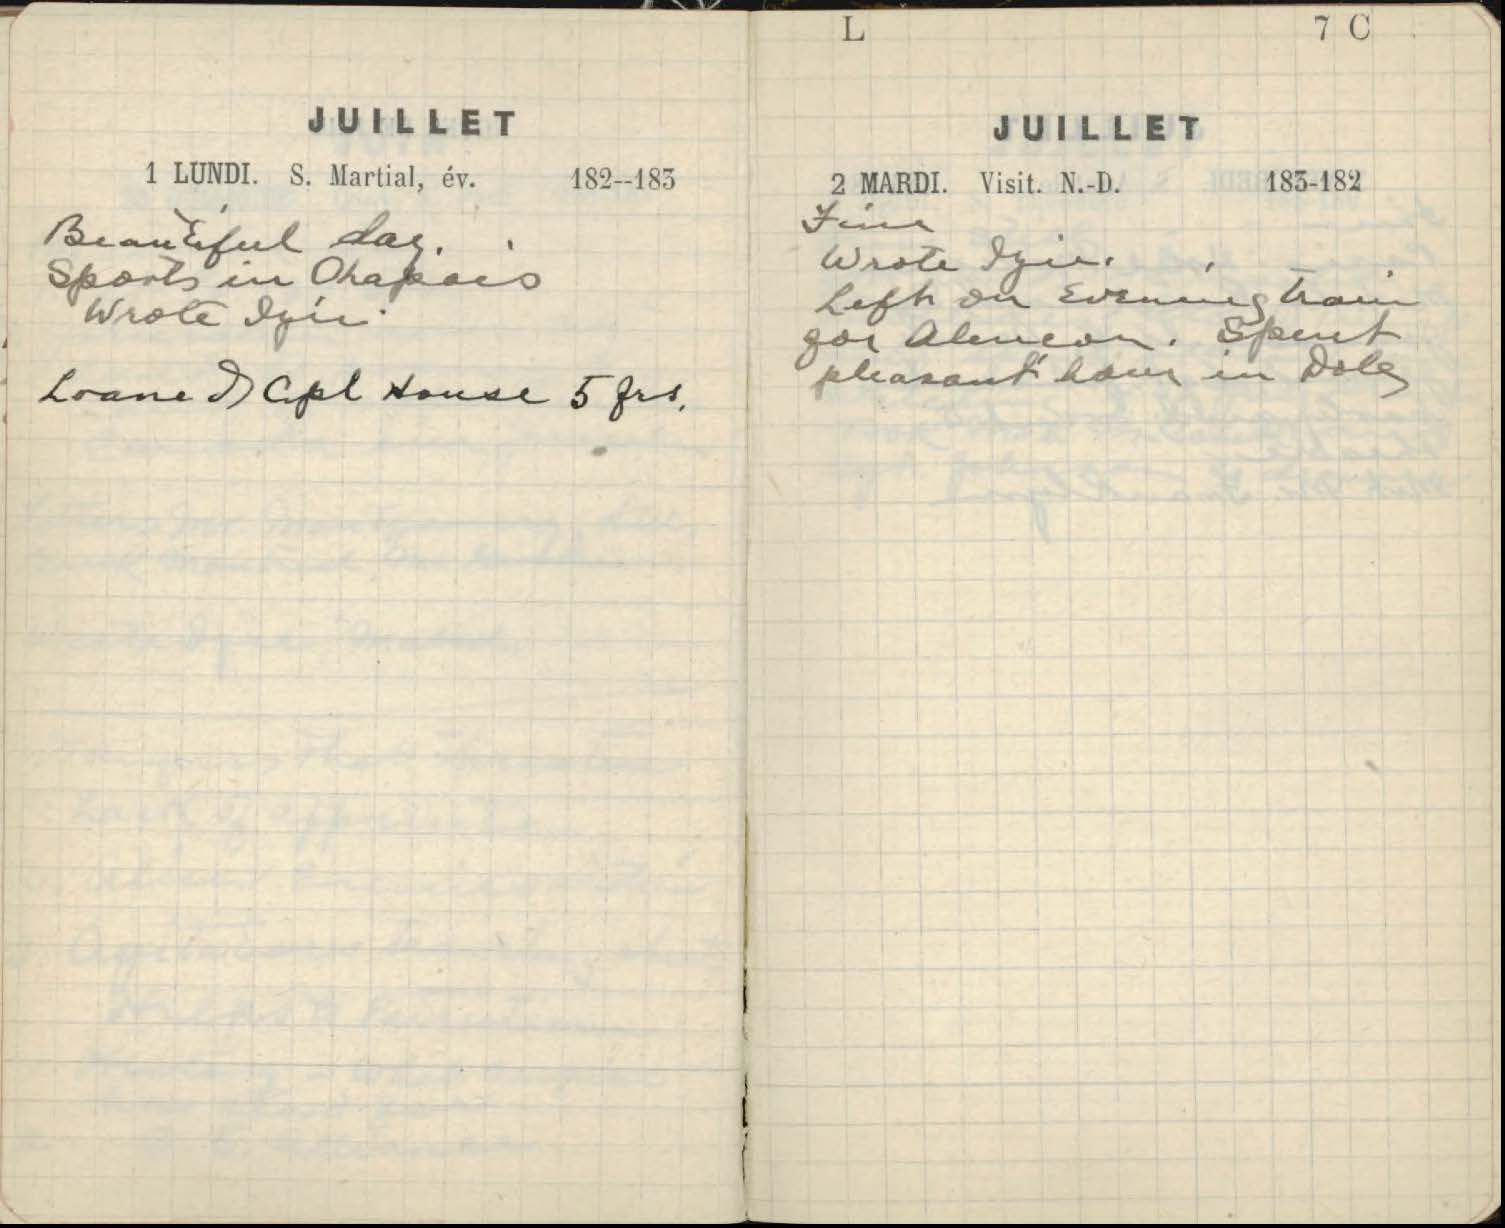 JUILLET
1 LUNDI. S. Martial, év. 182--183
Beautiful day.
Sports in Chapois
Wrote Izie.
Loaned Cpl House 5 frs.
L 7 C
JUILLET
2 MARDI. Visit. N.-D. 183-182
Fine
Wrote Izie.
Left on Evening train
for Alencon. Spent
pleasant hour in Dole